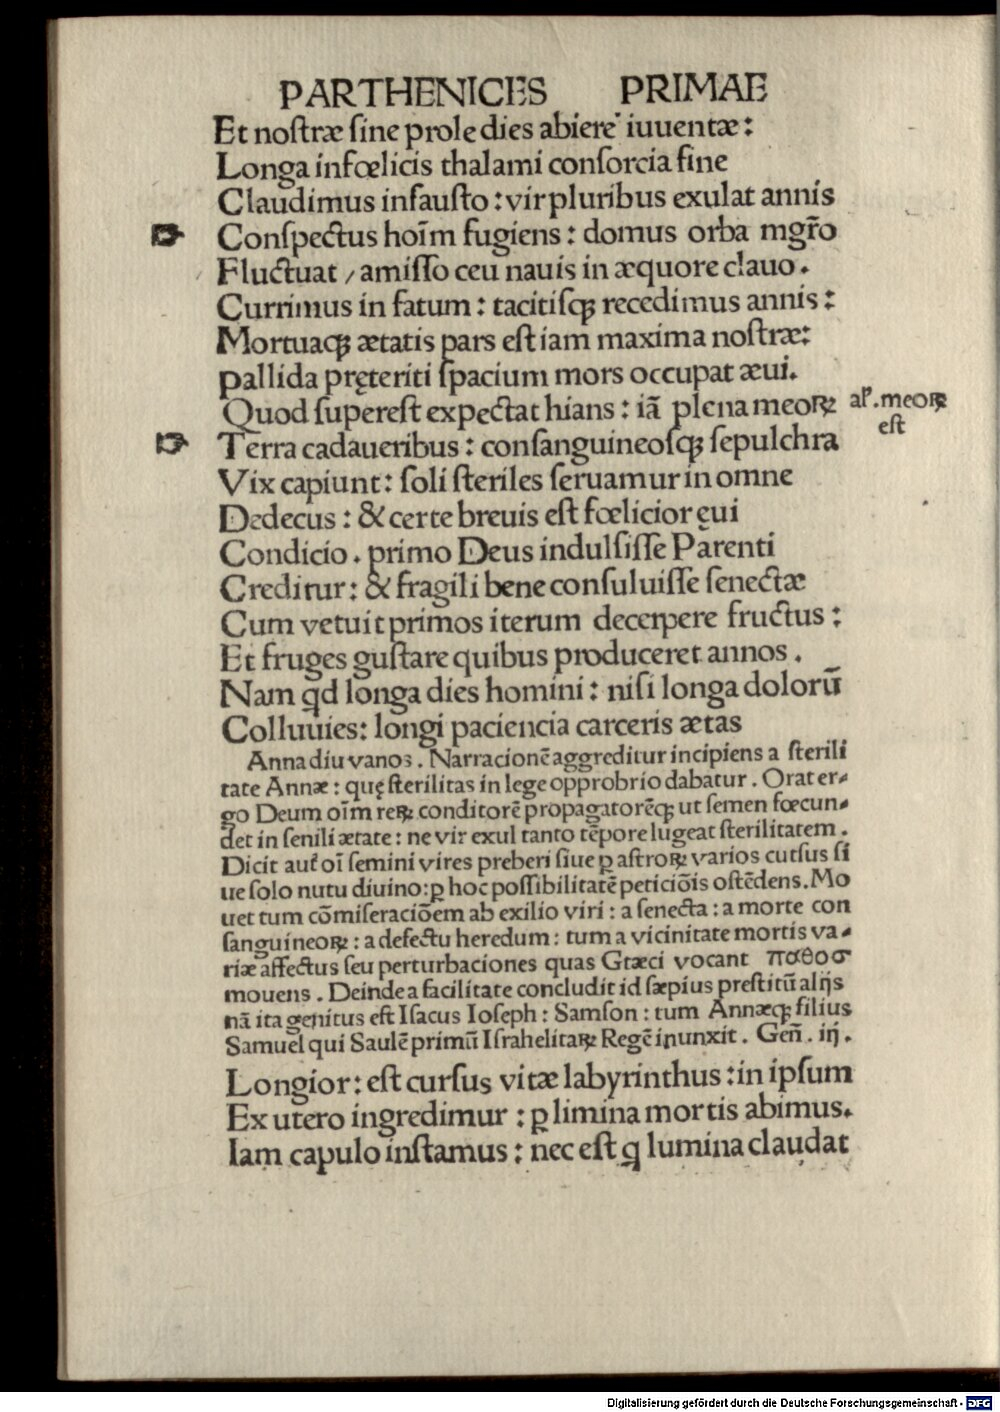 PARTHENICES PRIMAE
Et noſtræ ſine prole dies abiere iuuentæ:
Longa infœlicis thalami conſorcia fine
Claudimus infauſto: vir pluribus exulat annis
Conſpectus hoīm fugiens: domus orba mgr̄o
Fluctuat / amiſſo ceu nauis in æquore clauo.
Currimus in fatum: tacitiſqꝫ recedimus annis:
Mortuaqꝫ ætatis pars eſt iam maxima noſtræ:
pallida pręteriti ſpacium mors occupat æui.
Quod ſupereſt expectat hians: iā plena meoꝝ
al'. meoꝝ
eſt
Terra cadaueribus: conſanguineoſqꝫ ſepulchra
Vix capiunt: ſoli ſteriles ſeruamur in omne
Dedecus: & certe breuis eſt fœlicior ęui
Condicio. primo Deus indulſiſſe Parenti
Creditur: & fragili bene conſuluiſſe ſenectæ
Cum vetuit primos iterum decerpere fructus:
Et fruges guſtare quibus produceret annos.
Nam qd longa dies homini: niſi longa dolorū
Colluuies: longi paciencia carceris ætas
Anna diu vanos. Narracionē aggreditur incipiens a ſterili
tate Annæ: quę ſterilitas in lege opprobrio dabatur. Orat er⸗
go Deum oīm reꝝ conditorē propagatorēqꝫ ut ſemen fœcun⸗
det in ſenili ætate: ne vir exul tanto tēpore lugeat ſterilitatem.
Dicit aut̄ oī ſemini vires preberi ſiue ꝑ aſtroꝝ varios curſus ſi
ue ſolo nutu diuino: ꝑ hoc poſſibilitatē peticiōis oſtēdens. Mo
uet tum cōmiſeraciōem ab exilio viri: a ſenecta: a morte con
ſanguineoꝝ: a defectu heredum: tum a vicinitate mortis va⸗
riæ affectus ſeu perturbaciones quas Græci vocant παθοσ
mouens. Deinde a facilitate concludit id ſæpius preſtitū alijs
nā ita genitus eſt Iſacus Ioſeph: Samſon: tum Annæqꝫ filius
Samuel qui Saulē primū Iſrahelitaꝝ Regē inunxit. Gen̄. iij.
Longior: eſt curſus vitæ labyrinthus: in ipſum
Ex utero ingredimur: ꝑ limina mortis abimus.
Iam capulo inſtamus: nec eſt q lumina claudat
Digitalisierung gefördert durch die Deutsche Forschungsgemeinschaft - DFG